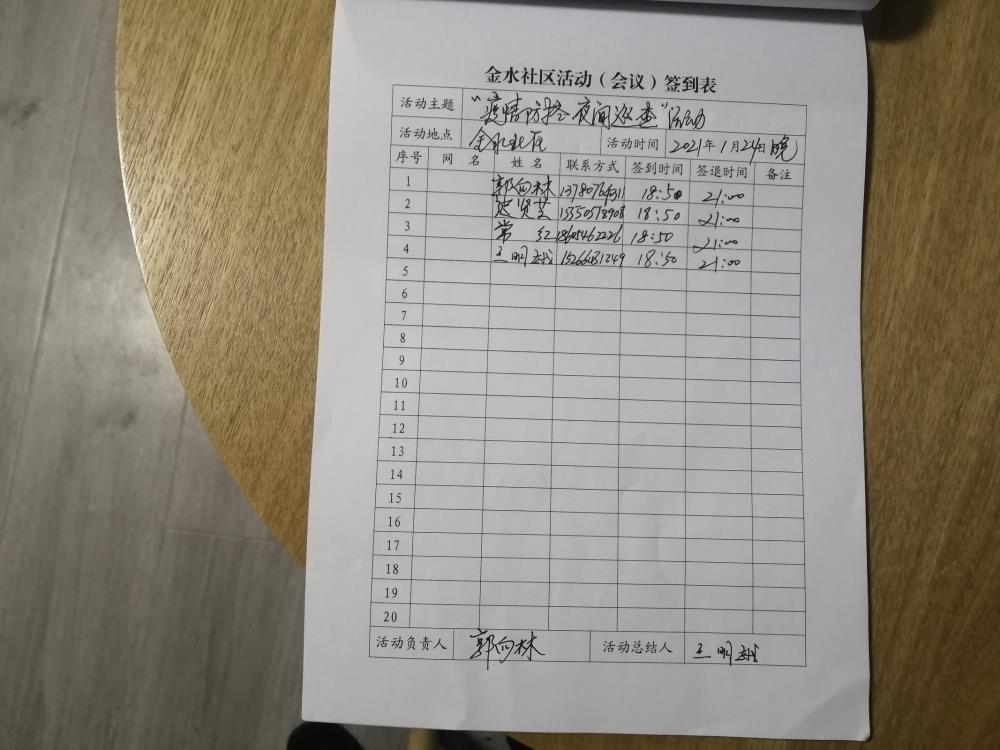 金水社区活动（会议）签到表
活动主题 “疫情防控夜间巡查”活动
活动地点 金水社区 活动时间 2021年1月24日晚
序号 网 名 姓 名 联系方式 签到时间 签退时间 备注
1 郭向林 18:50 21:00
2 贤芝 15550578908 18:50 21:00
3 常 红 18605462226 18:50 21:00
4 王明 15266681249 18:50 21:00
5
6
7
8
9
10
11
12
13
14
15
16
17
18
19
20
活动负责人 郭向林 活动总结人 王明